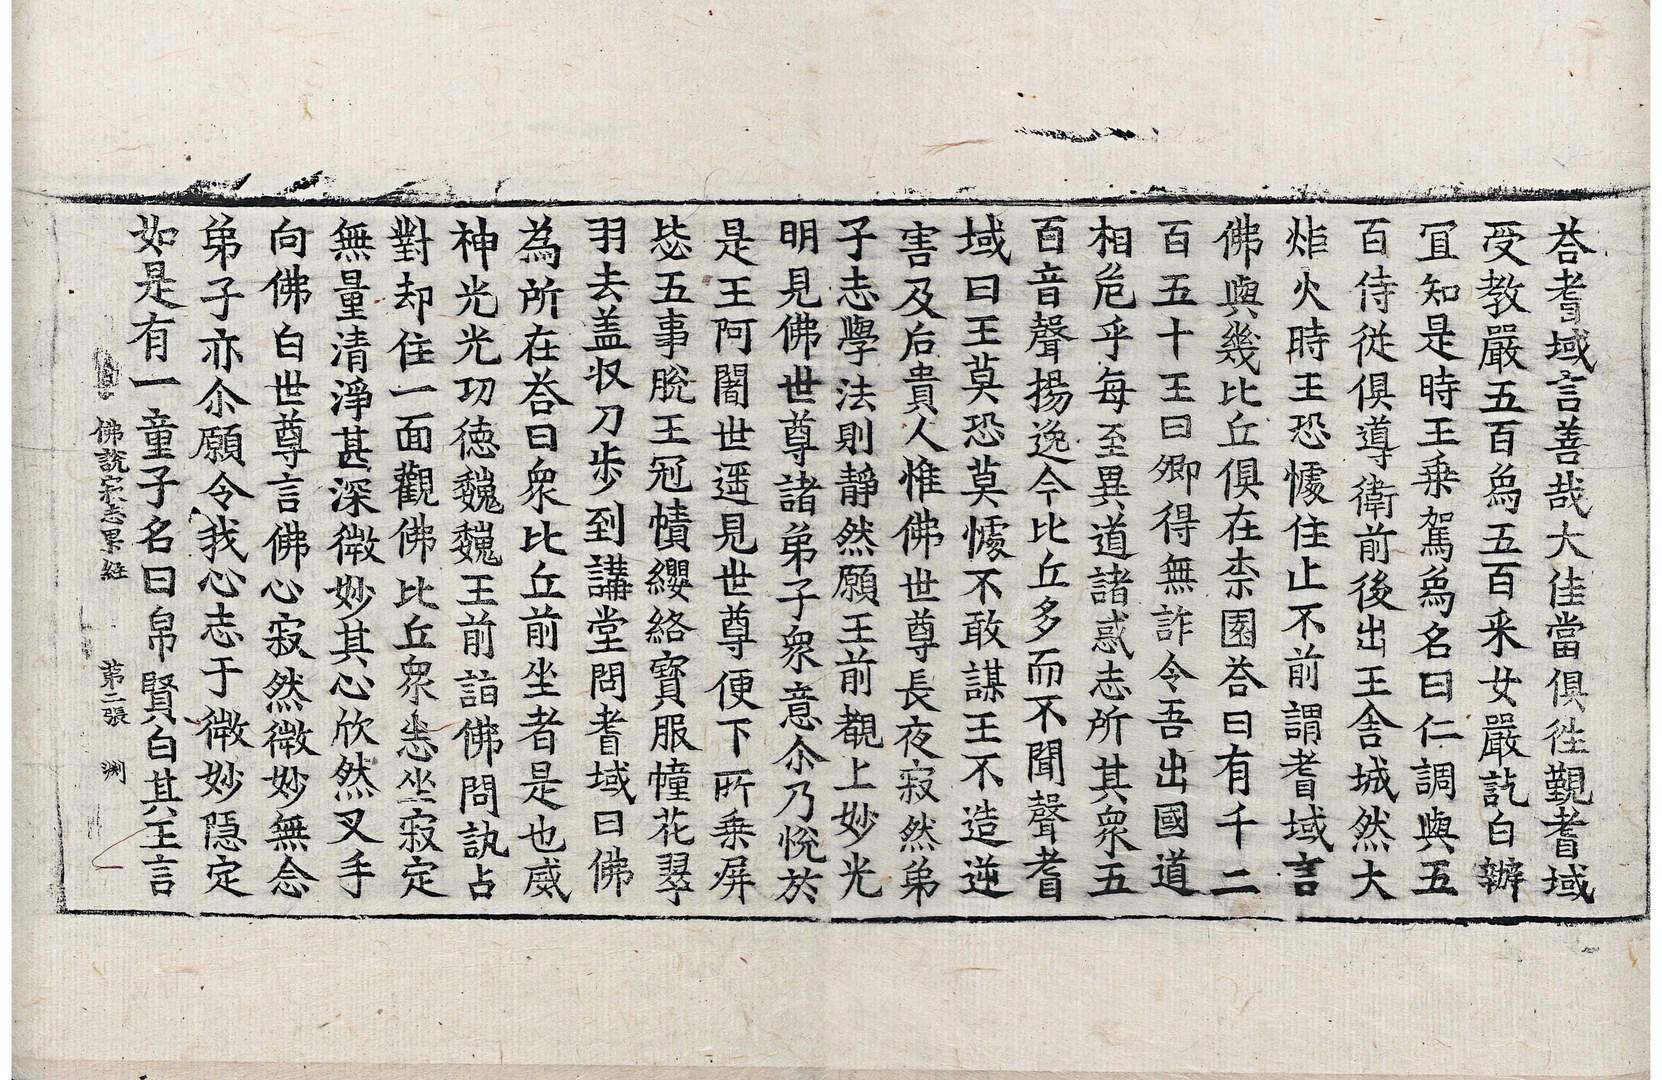 荅耆域言善哉大佳當俱徃覲耆域
受教嚴五百爲五百釆女嚴訖白辦
冝知是時王乗駕爲名曰仁調與五
百侍從俱導衛前後出王舎城然大
炬火時王恐懅住止不前謂耆域言
佛與幾比丘俱在柰園荅曰有千二
百五十王曰卿得無詐令吾出國道
相危乎每至異道諸惑志所其衆五
百音聲揚逸今比丘多而不聞聲耆
域曰王莫恐莫懅不敢謀王不造逆
害及后貴人惟佛世尊長夜寂然弟
子志學法則靜然願王前覩上妙光
明見佛世尊諸弟子衆意尒乃悅於
是王阿闍世遥見世尊便下所乗屏
㲋五事脫王冠幘纓絡寶服幢花翠
羽去盖収刀步到講堂問耆域曰佛
為所在荅曰衆比丘前坐者是也威
神光光功德巍巍王前詣佛問訊占
對却住一面觀佛比丘衆恙坐寂定
無量清淨甚深微妙其心欣然叉手
向佛白世尊言佛心寂然微妙無念
弟子亦尒願令我心志于微妙隱定
如是有一童子名曰帛賢白其王言
佛說寂志果経　第二張　渕